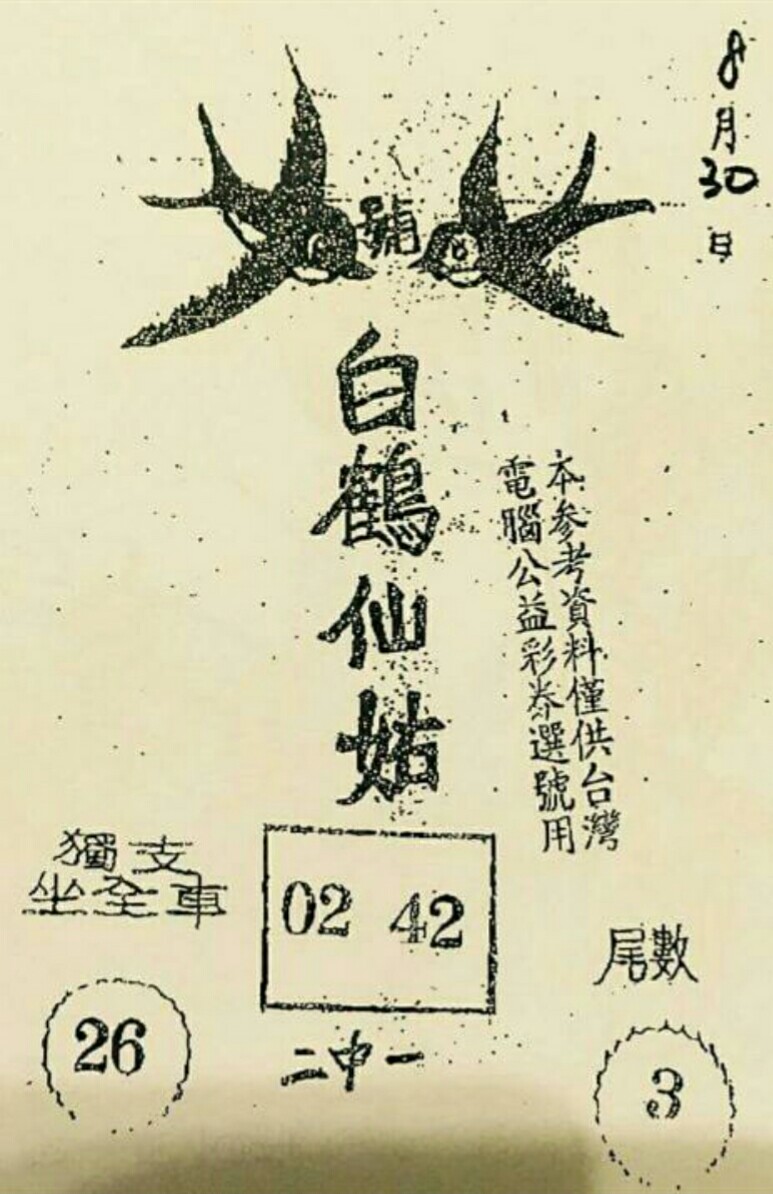 8月30日
號
白鶴仙姑
本參考資料僅供台灣
電腦公益彩券選號用
獨支
坐全車
02 42
尾數
26
二中一
3